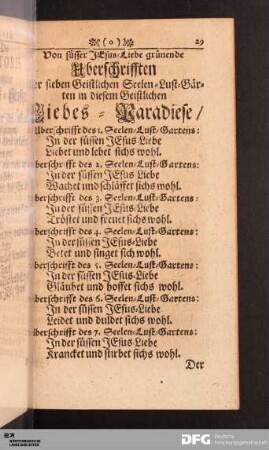 (0) 29
Von süsser JEsus-Liebe grünende
Uberschrifften
er sieben Geistlichen Seelen-Lust-Gär-
ten in diesem Geistlichen
Liebes-Paradiese/
Uberschrifft des 1. Seelen-Lust-Gartens:
In der süssen JEsus-Liebe
Liebet und lebet sichs wohl.
berschrifft des 2. Seelen-Lust-Gartens:
In der süssen JEsus-Liebe
Wachet und schläffet sichs wohl.
berschrifft des 3. Seelen-Lust-Gartens:
In der süssen JEsus-Liebe
Tröstet und freuet sichs wohl.
berschrifft des 4. Seelen-Lust-Gartens:
In der süssen JEsus-Liebe
Betet und singet sich wohl.
berschrifft des 5. Seelen-Lust-Gartens:
In der süssen JEsus-Liebe
Gläubet und hoffet sichs wohl.
berschrifft des 6. Seelen-Lust-Gartens:
In der süssen JEsus-Liebe
Leidet und duldet sichs wohl.
berschrifft des 7. Seelen-Lust-Gartens:
In der süssen JEsus-Liebe
Krancket und stirbet sichs wohl.
Der
DFG Deutsche
Forschungsgemeinschaft